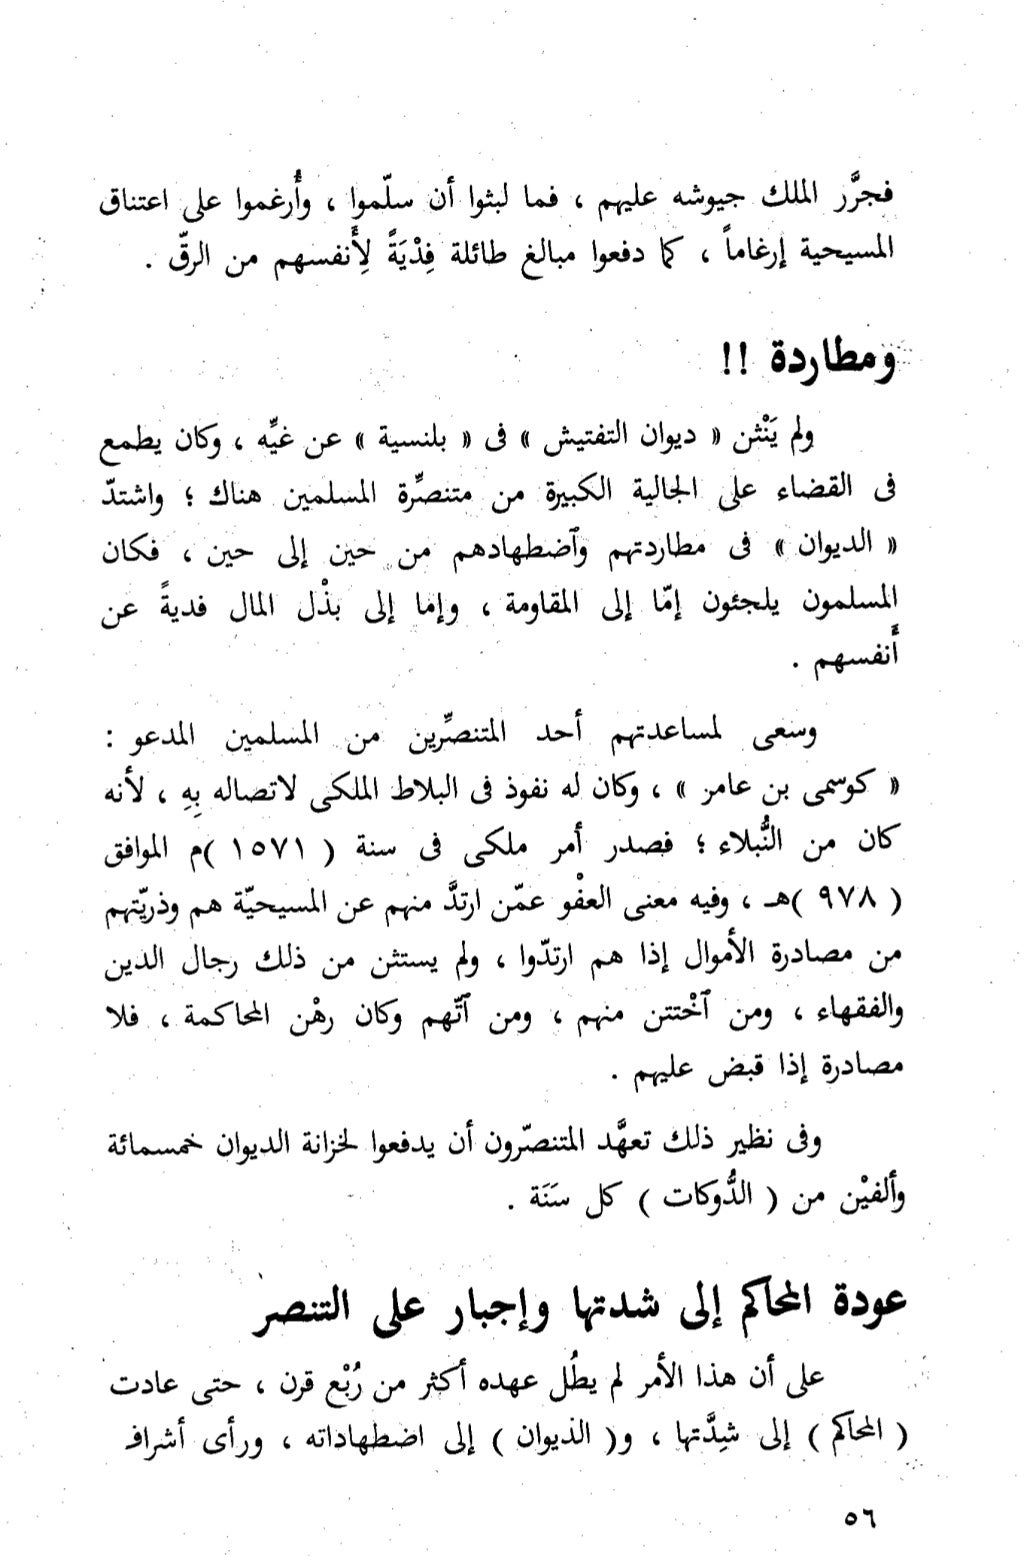 فجرَّر الملك جيوشه عليهم ، فما لبثوا أن سلّموا ، وأُرغموا على اعتناق
المسيحية إرغاماً ، كما دفعوا مبالغ طائلة فِدْيَةً لِأَنفسهم من الرقّ .
ومطاردة !!
ولم يَنْثن « ديوان التفتيش » فى « بلنسية » عن غيِّه ، وكان يطمع
فى القضاء على الجالية الكبيرة من متنصِّرة المسلمين هناك ؛ واشتدّ
« الديوان » فى مطاردتهم وٱضطهادهم من حين إلى حين ، فكان
المسلمون يلجئون إمّا إلى المقاومة ، وإما إلى بذْل المال فديةً عن
أَنفسهم .
وسعى لمساعدتهم أحد المتنصِّرين من المسلمين المدعو :
« كوسمى بن عامر » ، وكان له نفوذ فى البلاط الملكى لاتصاله بِهِ ، لأنه
كان من النُّبلاء ؛ فصدر أمر ملكى فى سنة ( ١٥٧١ )م الموافق
( ٩٧٨ )هـ ، وفيه معنى العفْو عمّن ارتدَّ منهم عن المسيحيّة هم وذريّتهم
من مصادرة الأموال إذا هم ارتدّوا ، ولم يستثن من ذلك رجال الدين
والفقهاء ، ومن ٱخْتتن منهم ، ومن ٱتّهم وكان رهْن المحاكمة ، فلا
مصادرة إذا قبض عليهم .
وفى نظير ذلك تعهَّد المتنصّرون أن يدفعوا لخزانة الديوان خمسمائة
وألفيْن من ( الدُّوكات ) كل سَنَة .
عودة المحاكم إلى شدتها وإجبار على التنصر
على أن هذا الأمر لم يطُل عهده أكثر من رُبْع قرن ، حتى عادت
( المحاكم ) إلى شِدَّتها ، و( الديوان ) إلى اضطهاداته ، ورأى أشراف
٥٦